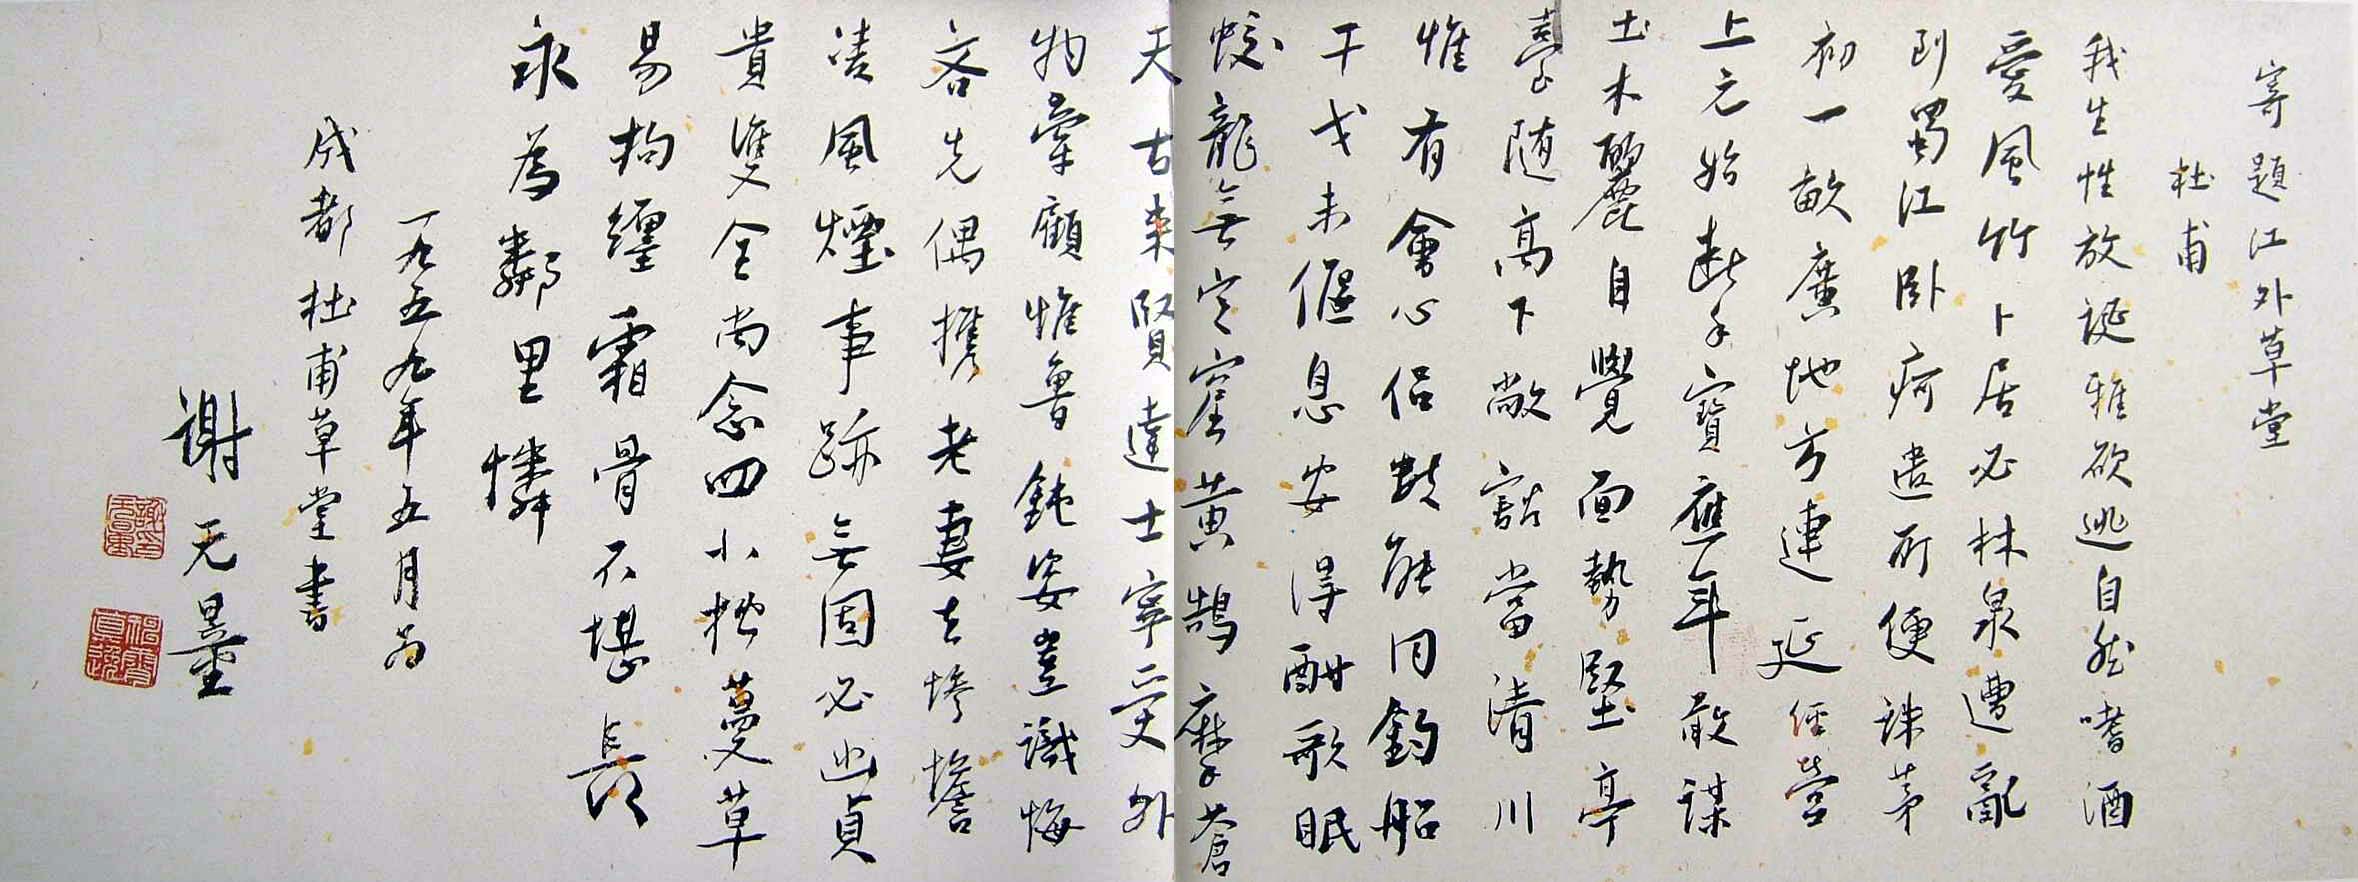 寄題江外草堂
杜甫
我生性放誕雅欲逃自然嗜酒
愛風竹卜居必林泉遭亂
到蜀江臥痾遣所便誅茅
初一畝廣地方連延經營
上元始斷手寶應年敢謀
土木麗自覺面勢堅亭
臺隨高下敞豁當清川
惟有會心侶數能同釣船
干戈未偃息安得酣歌眠
蛟龍無定窟黃鵠摩蒼
天古來賢達士寧受外
物牽顧惟魯鈍姿豈識悔
吝先偶攜老妻去慘憺
凌風煙事跡無固必幽貞
貴雙全尚念四小松蔓草
易拘纏霜骨不堪長
永為鄰里憐
一九五九年五月为
成都杜甫草堂書
謝无量